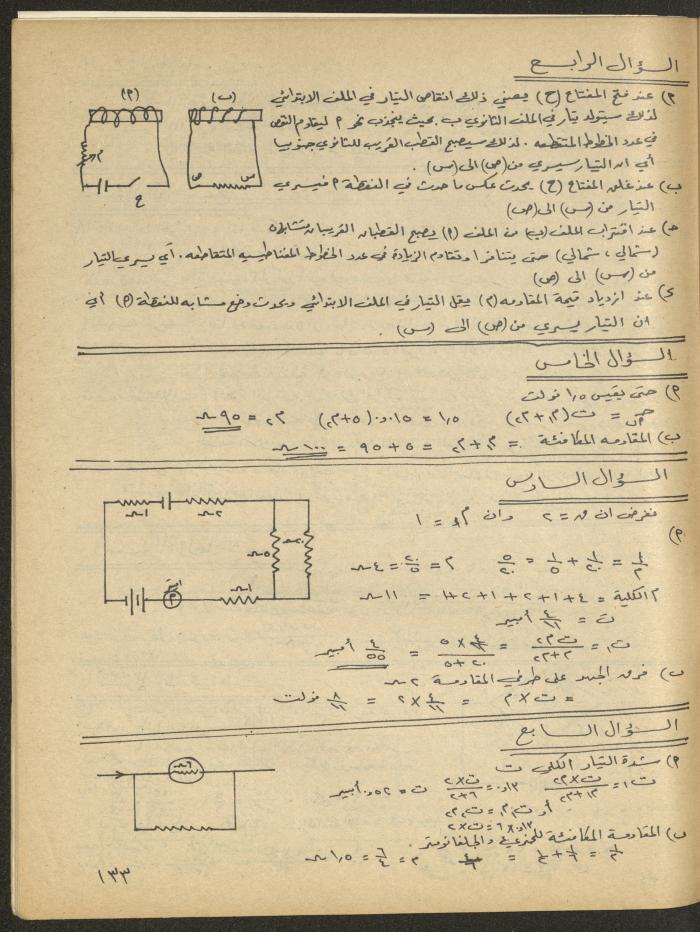 السؤال الرابع
(م) (ب)
م) عند فتح المفتاح (ح) يعني ذلك انقاص التيار في الملف الابتدائي
لذلك سيتولد تيار في الملف الثانوي ب بحيث ينجذب نحو م ليقاوم النقص
في عدد الخطوط المتقطعه . لذلك سيصبح القطب القريب للثانوي جنوبيا
أي ان التيار سيسري من (ص) الى (س) .
ب) عند غلق المفتاح (ح) يحدث عكس ما حدث في النقطة م فيسري
التيار من (س) الى (ص)
حـ) عند اقتراب الملف (ب) من الملف (م) يصبح القطبان القريبان متشابهان
(شمالي ، شمالي) حتى يتنافرا وتقاوم الزيادة في عدد الخطوط المغناطيسيه المتقاطعه . أي يسري التيار
من (س) الى (ص)
ء) عند ازدياد قيمة المقاومه (م) يقل التيار في الملف الابتدائي ويحدث وضع مشابه للنقطة (م) أي
ان التيار يسري من (ص) الى (س) .
السؤال الخامس
م) حتى يقيس ١٫٥ فولت
جـ = ت (م١ + م٢) ١٫٥ = ٠٫٠١٥ (٥ + م٢) م٢ = ٩٥ م
ب) المقاومه المكافئة = م١ + م٢ = ٥ + ٩٥ = ١٠٠ م
السؤال السادس
نفرض ان ق = ٢ وان م = ١
م)
١/م = ١/٢٠ + ١/٥ = ٥/٢٠ م = ٢٠/٥ = ٤ م
م الكلية = ٤ + ١ + ٢ + ١ + ٢ + ١ = ١١ م
ت = ٤/١١ أمبير
ت١ = ت م٢/م١ + م٢ = ٤/١١ × ٥/٢٠ + ٥ = ٤/٥٥ أمبير
ب) فرق الجهد على طرفي المقاومة ٢ م
= ت × م = ٤/١١ × ٢ = ٨/١١ فولت
السؤال السابع
م) شدة التيار الكلي ت
ت١ = ت × م٢/م١ + م٢ ٠٫١٣ = ت × ٢/٦ + ٢ ت = ٠٫٥٢ أمبير
أو ت١ م١ = ت٢ م٢
٠٫١٣ × ٦ = ت × ٢
ب) المقاومة المكافئة للمجزيء والجلفانومتر .
١/م = ١/٦ + ١/٢ = ٤/٦ م = ٦/٤ = ١٫٥ م
١٣٣